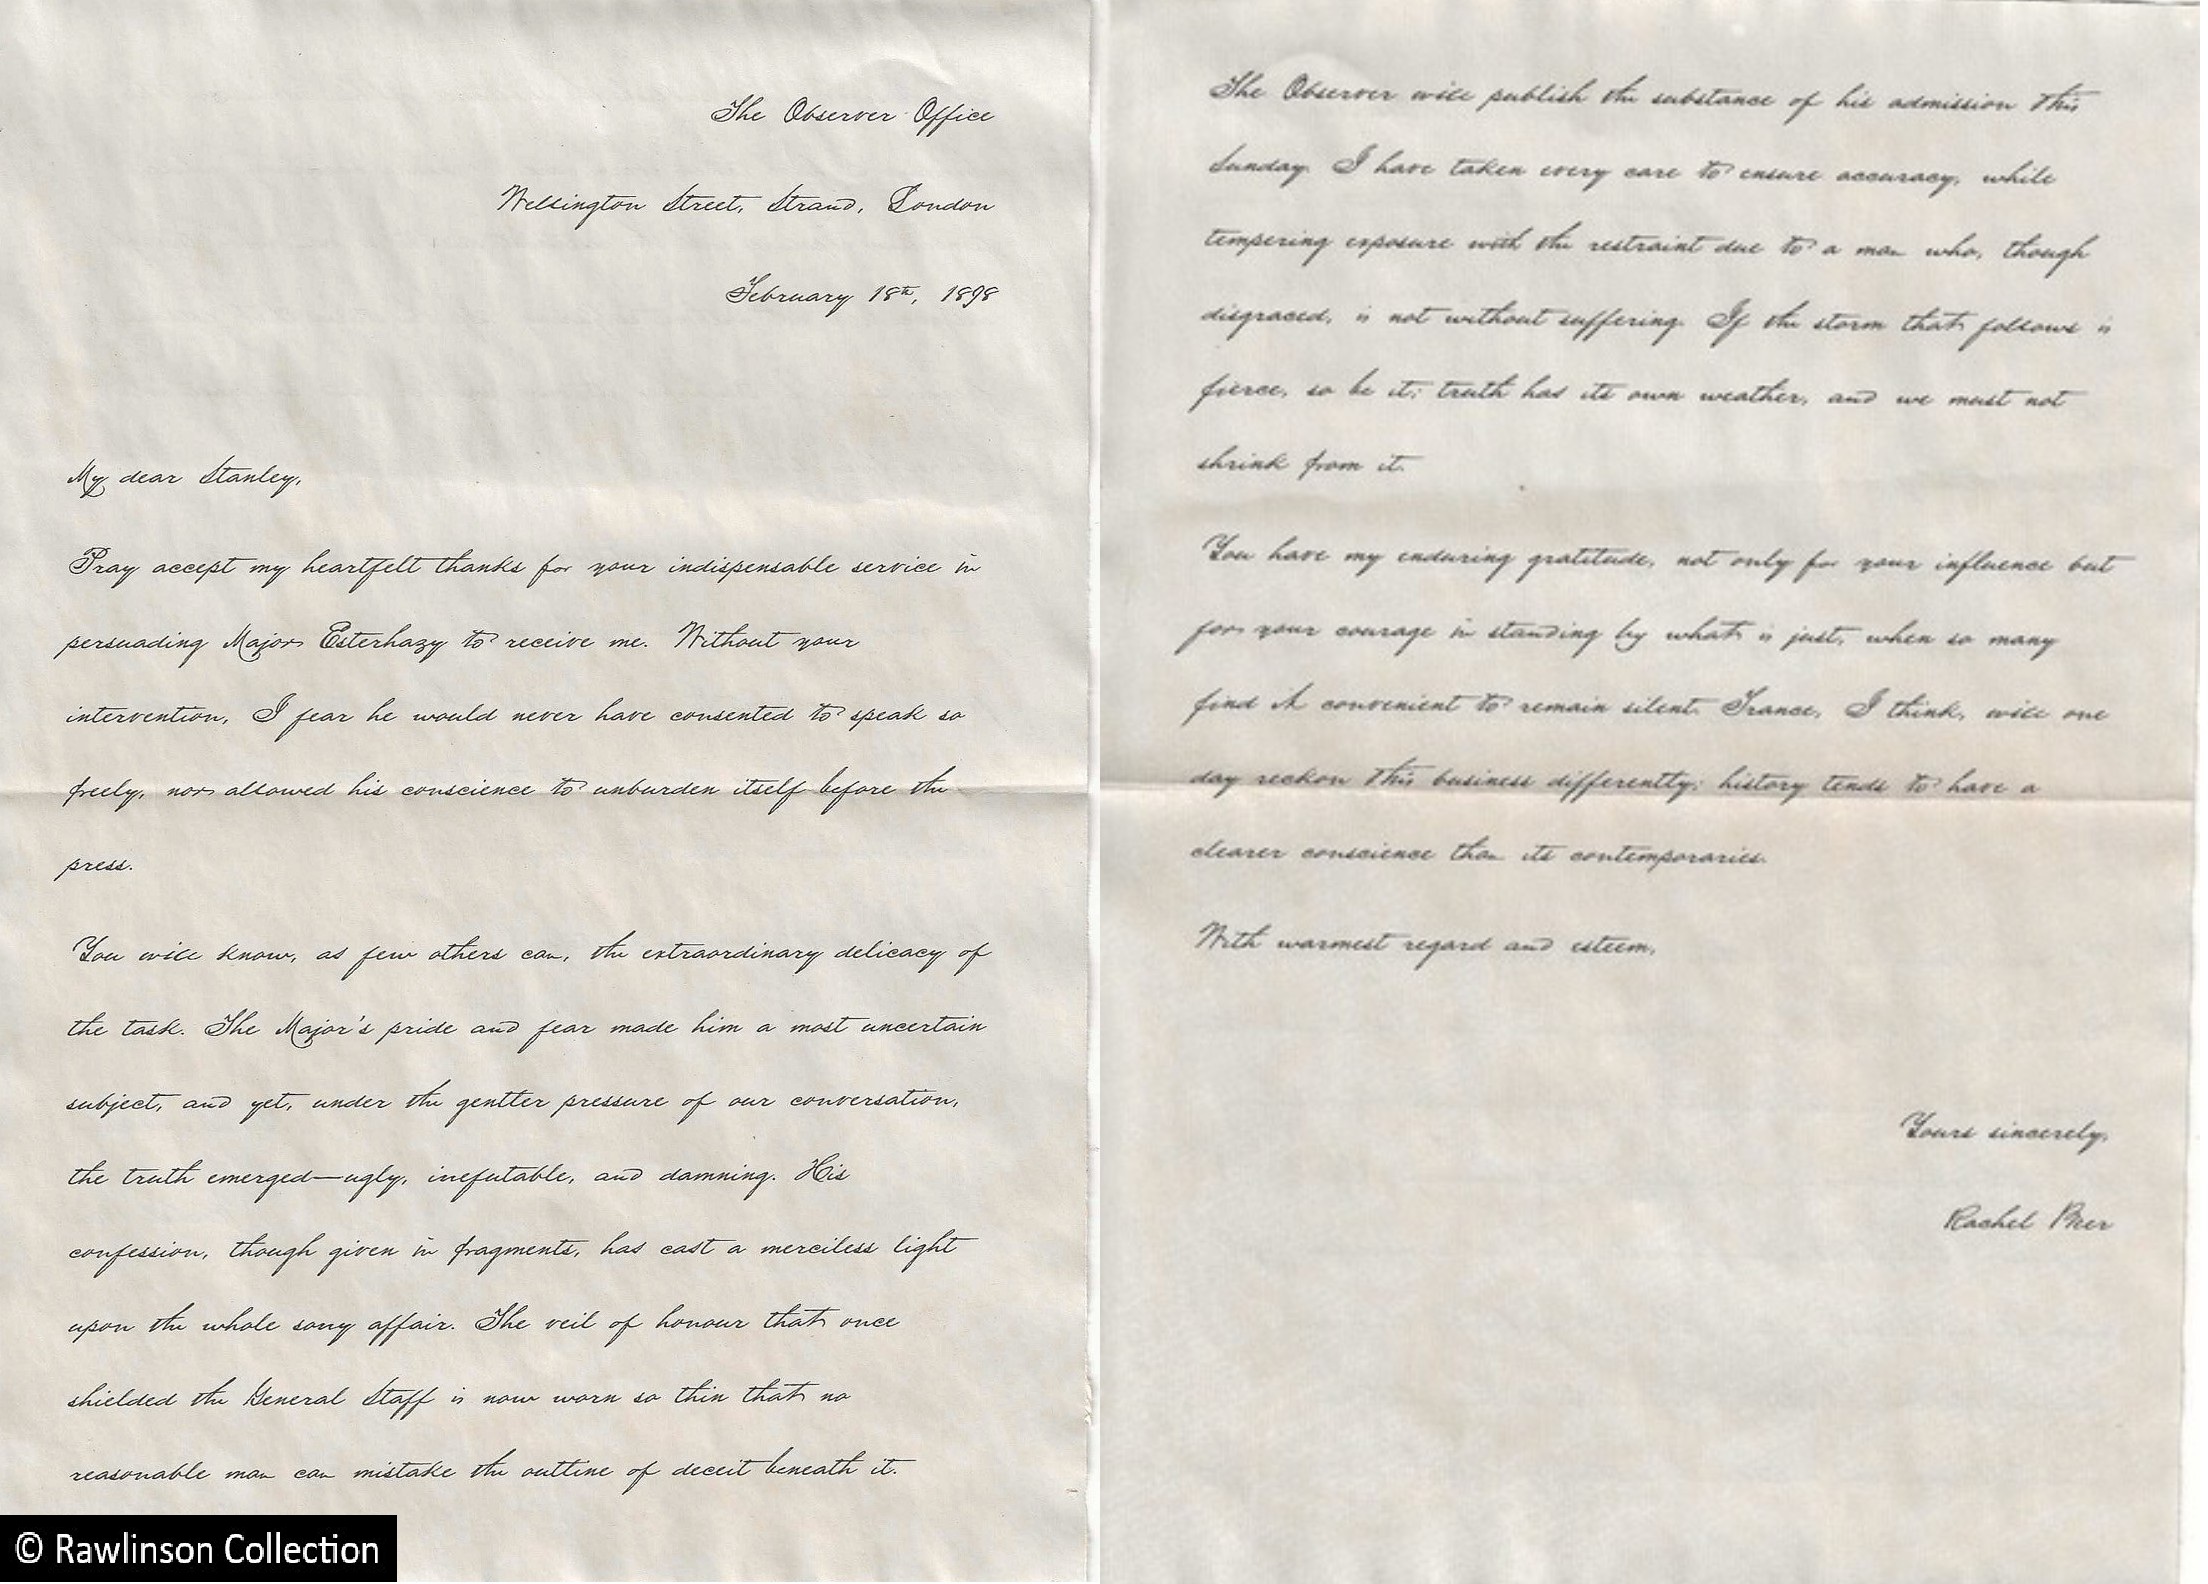 The Observer Office
Wellington Street, Strand, London
February 18th, 1898
My dear Stanley,
Pray accept my heartfelt thanks for your indispensable service in
persuading Major Esterhazy to receive me. Without your
intervention, I fear he would never have consented to speak so
freely, nor allowed his conscience to unburden itself before the
press.
You will know, as few others can, the extraordinary delicacy of
the task. The Major's pride and fear made him a most uncertain
subject, and yet, under the gentler pressure of our conversation,
the truth emerged—ugly, irrefutable, and damning. His
confession, though given in fragments, has cast a merciless light
upon the whole sorry affair. The veil of honour that once
shielded the General Staff is now worn so thin that no
reasonable man can mistake the outline of deceit beneath it.
The Observer will publish the substance of his admission this
Sunday. I have taken every care to ensure accuracy, while
tempering exposure with the restraint due to a man who, though
disgraced, is not without suffering. If the storm that follows is
fierce, so be it; truth has its own weather, and we must not
shrink from it.
You have my enduring gratitude, not only for your influence but
for your courage in standing by what is just, when so many
find it convenient to remain silent. France, I think, will one
day reckon this business differently; history tends to have a
clearer conscience than its contemporaries.
With warmest regard and esteem,
Yours sincerely,
Rachel Beer
© Rawlinson Collection